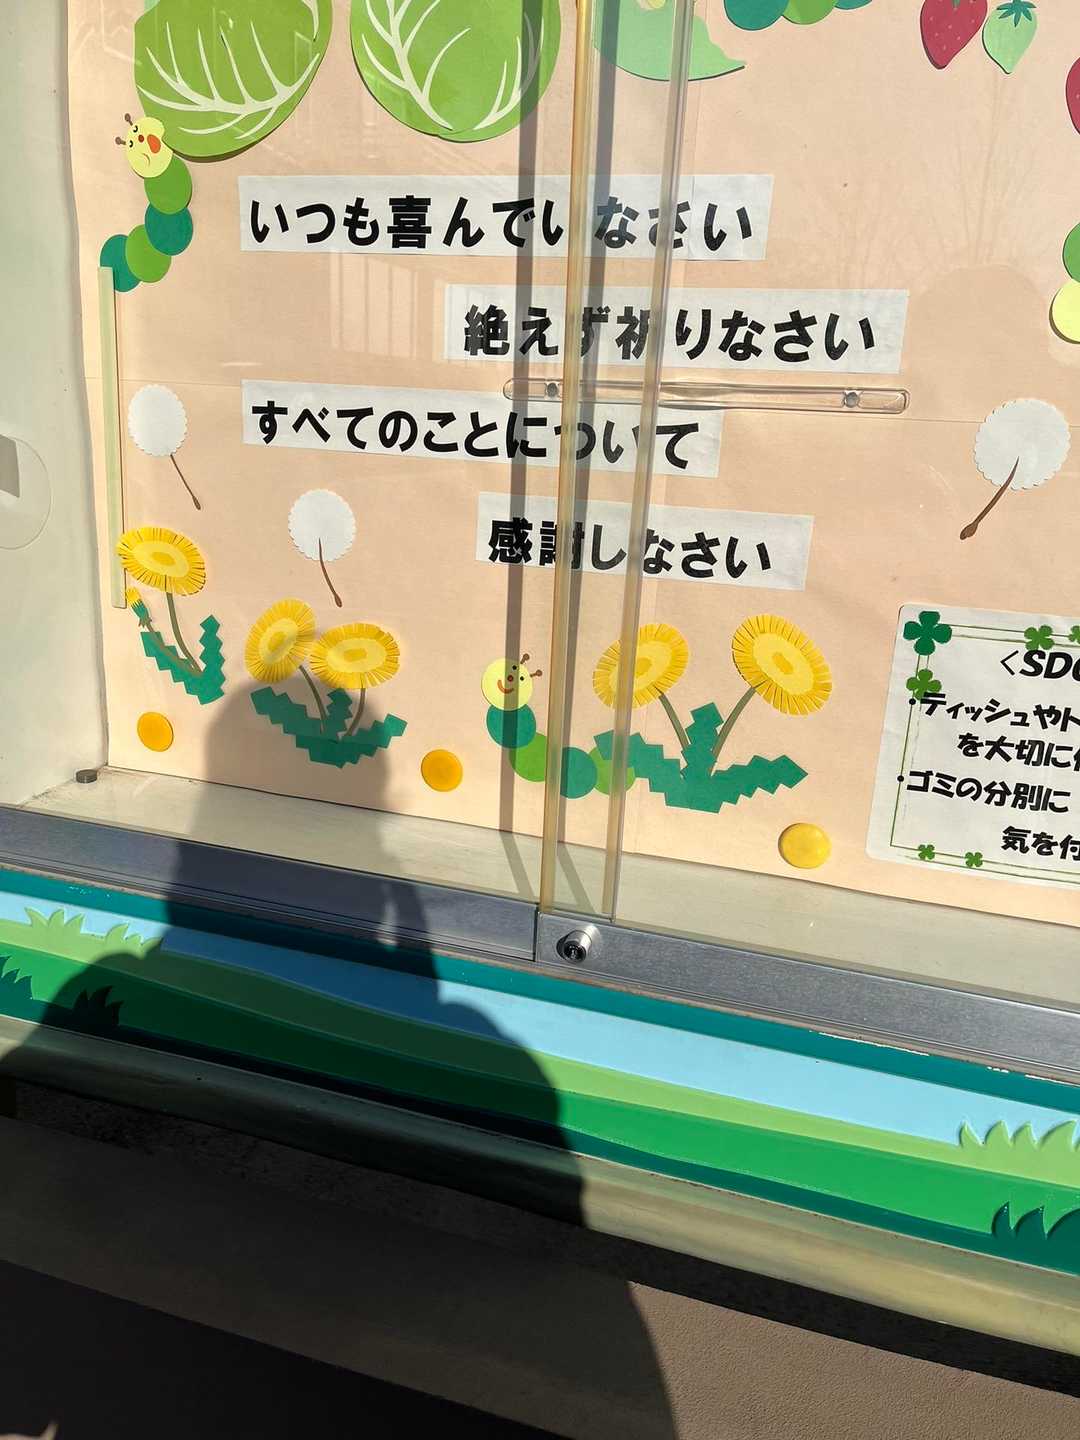 いつも喜んでいなさい
絶えず祈りなさい
すべてのことについて
感謝しなさい
<SDG
・ティッシュやト
を大切に
・ゴミの分別に
気を付